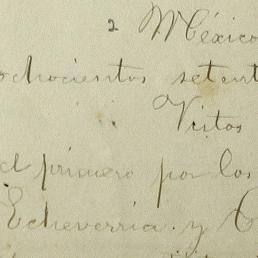 2 México
ochocientos setent
Vistos
el primero por los
Echeverria. y C